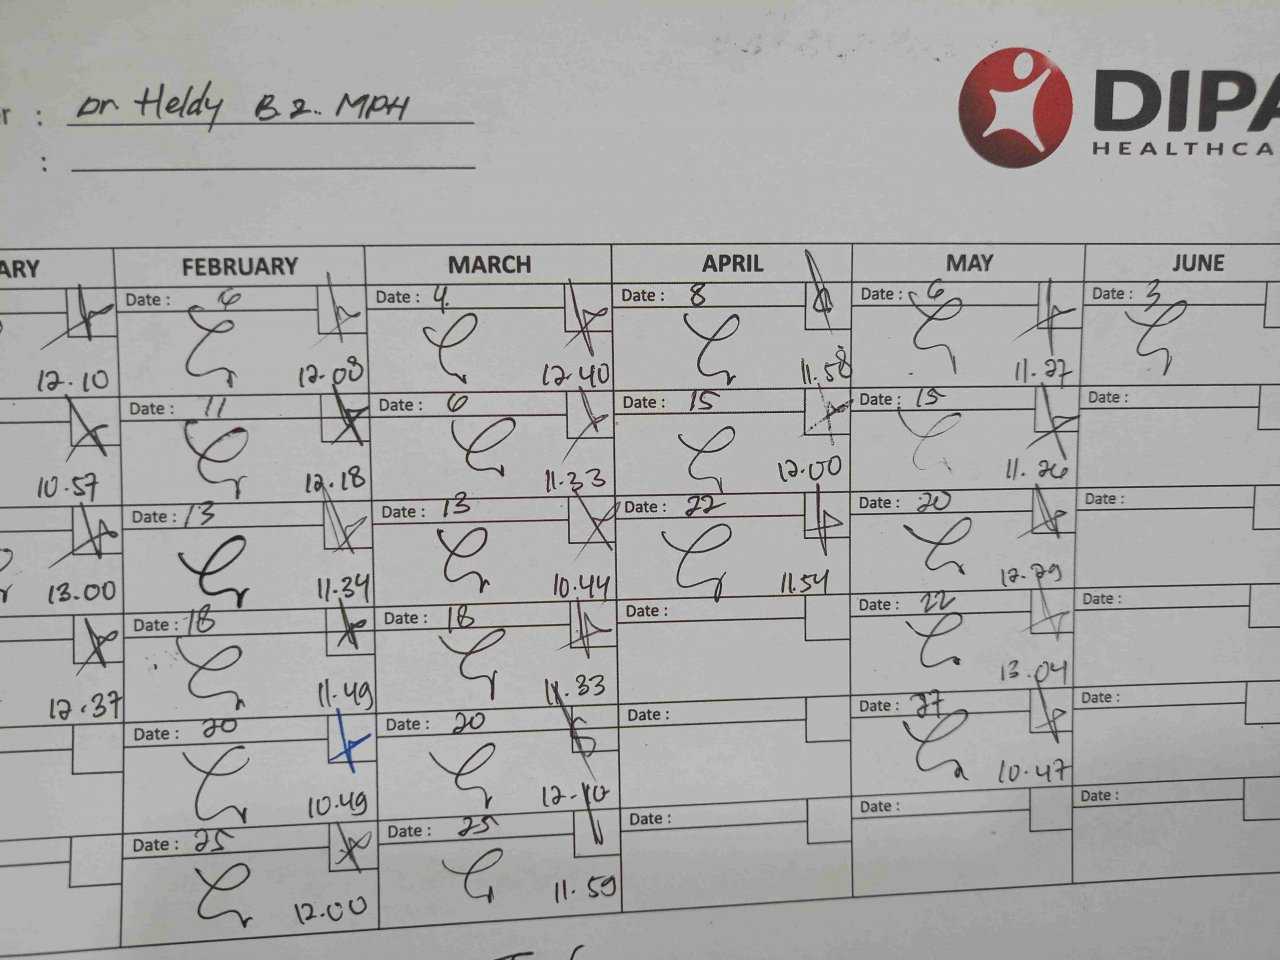 r : Dr. Heldy B.Z. MPH
:
DIPA
HEALTHCA
ARY FEBRUARY MARCH APRIL MAY JUNE
Date : 6 Date : 4 Date : 8 Date : 6 Date : 3
12.10 12.08 12.40 11.58 11.27
Date : 11 Date : 6 Date : 15 Date : 15 Date :
10.57 12.18 11.33 12.00 11.26
Date : 13 Date : 13 Date : 22 Date : 20 Date :
13.00 11.34 10.44 11.54 12.29
Date : 18 Date : 18 Date : Date : 22 Date :
12.37 11.49 11.33 13.04
Date : 20 Date : 20 Date : Date : 27 Date :
10.49 12.10 10.47
Date : 25 Date : 25 Date : Date : Date :
12.00 11.59